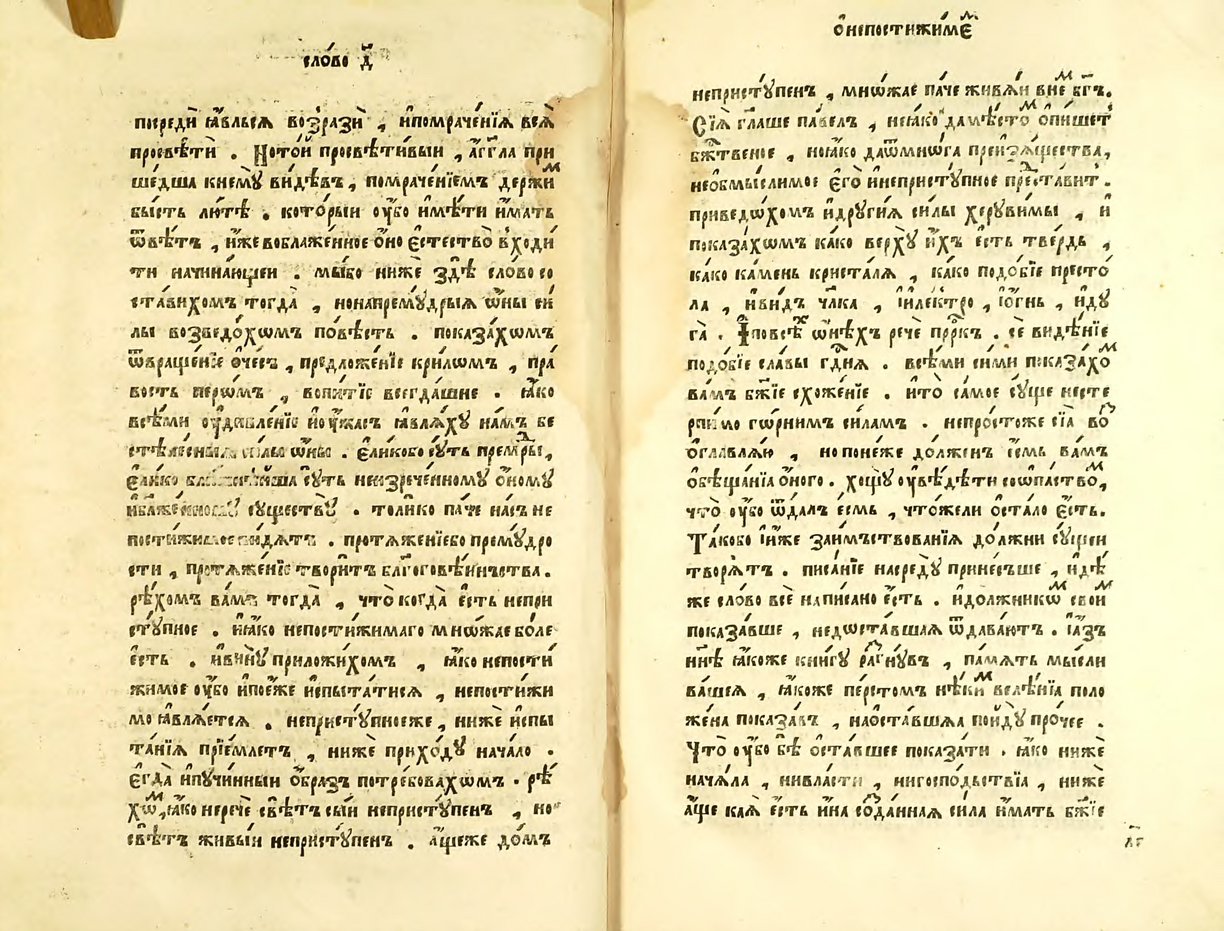 сло́во д҃
посредѝ ꙗ҆́вльсѧ возразѝ , и҆помраче́нїѧ всѧ̀
просвѣтѝ . Но҆то́и просвѣти́выи , а҆́гг҃ла при
ше́дша кнемꙋ̀ ви́дѣвъ , помраче́нїемъ держи́ᷟ
бы́сть лю́тѣ . кото́рыи ᲂу҆́бо и҆мѣ́ти и҆́мать
ѿвѣ́тъ , и҆́же воблаже́нное о҆́но є҆стество̀ входи
ти начина́ющеи . мы́бо нижѐ здѣ̀ сло́во со
ста́вихомъ тогда̀ , нонапремꙋ́дрыѧ ѡ҆́ны си́
лы возведо́хомъ по́вѣсть . показа́хомъ
ѿвраще́нїе о҆че́съ , предложе́нїе крилѡ́мъ , пра́
вость перѡ́мъ , вопи́тїе всегда́шне . ꙗ҆́ко
всѣ́ми ᲂу҆дивле́нїе и҆ᲂу҆́жасъ ꙗ҆влѧ́хꙋ на́мъ бе
стѣле́сныѧ си́лы ѡ҆́ны . є҆ли́кобо сꙋ́ть премⷣры ,
є҆ли́ко бли́жнѣйша сꙋ́ть неизрече́нномꙋ о҆́номꙋ
и҆блаже́нномꙋ сꙋществꙋ̀ . толи́ко па́че на́съ не
пости́жимое ви́дѧтъ . протѧже́нїебо премꙋ́дро
сти , протѧже́нїе твори́тъ бл҃гоговѣ́инъства .
рѣ́хомъ ва́мъ тогда̀ , что когда̀ є҆́сть непри
стꙋ́пное . и҆ꙗ҆́ко непостижи́маго мно́жае бо́ле
є҆сть . и҆винꙋ̀ приложи́хомъ , ꙗ҆́ко непости́
жимое ᲂу҆́бо и҆по́еже и҆спыта́тисѧ , непости́жи
мо ꙗ҆влѧ́етсѧ . непристꙋ́пноеже , нижѐ и҆спы
та́нїѧ прїе́млетъ , нижѐ прихо́дꙋ нача́ло .
є҆гда̀ и҆пꙋчи́нныи о҆́бразъ потре́бовахомъ . рѣ́
хѡᷟ , ꙗ҆́ко неречѐ свѣ́тъ сы́и непристꙋ́пенъ , но
свѣ́тъ живы́и непристꙋ́пенъ . а҆́щеже до́мъ
ѡ҆непостижи́мѣᷟ
непристꙋ́пенъ , мно́жае па́че живѧ́и вне́ᷟ бг҃ъ .
Сїѧ̀ гл҃аше па́велъ , неꙗ҆́ко да мѣ́стоᷟ о҆пи́шетъ
бж҃твеное , ноꙗ҆́ко даѿмно́га преизѧ́щества ,
необмы́слимое є҆го̀ и҆непристꙋ́пное предста́витъ .
приведо́хомъ и҆дрꙋгі́ѧ си́лы херꙋви́мы , и҆
показа́хомъ ка́ко верхꙋ̀ и҆́хъ є҆́сть тве́рдь ,
ка́ко ка́мень криста́лѧ , ка́ко подо́бїе престо́
ла , и҆ви́дъ чл҃ка , и҆иле́ктро , і҆ѻ҆́гнь , и҆дꙋ
га̀ . І҆повсѣ́хъ ѡ҆нѣ́хъ речѐ прⷪ҇ркъ . сѐ видѣ́нїе
подо́бїе сла́вы гдⷭ҇нѧ . всѣ́ми си́ми показа́хоᷟ
ва́мъ бж҃їе схожде́нїе . и҆то̀ са́мое сꙋ́ще несте
рпи́мо го́рнимъ си́ламъ . непросто́же сїѧ̀ во
ѻ҆главлѧ́ю , но поне́же до́лженъ є҆́смь ва́мъ
о҆бѣща́нїѧ о҆́ного . хощꙋ̀ ᲂу҆вѣ́дѣти соѡпа́ствоᷟ ,
что̀ ᲂу҆́бо ѿда́лъ є҆́смь , что́жели о҆ста́ло є҆́сть .
Та́кобо и҆и́же заимъствова́нїѧ до́лжни сꙋ́щеи
творѧ́тъ . писа́нїе насредꙋ̀ прине́съше , и҆дѣ́
же сло́во всѐ напи́сано є҆́сть . и҆должникѡ́ᷟ свои́ᷟ
показа́вше , недѡста́вшаѧ ѿдаваю́тъ . і҆а́зъ
нн҃ѣ ꙗ҆́коже кни́гꙋ ра́згнꙋвъ , па́мѧть мы́сли
ва́шеѧ , ꙗ҆́коже пе́рстомъ нѣ́киᷟ велѣ́нїѧ поло
же́на показа́въ , наѡста́вшаѧ пои́дꙋ про́чее .
Что̀ ᲂу҆́бо бѣ̀ ѡ҆ста́вшее показа́ти . ꙗ҆́ко нижѐ
нача́ла , нивла́сти , нигоспо́дьствїа , нижѐ
а҆́ще ка́ѧ є҆́сть и҆́на со́зданнаѧ си́ла и҆́мать бж҃їе
лг҃